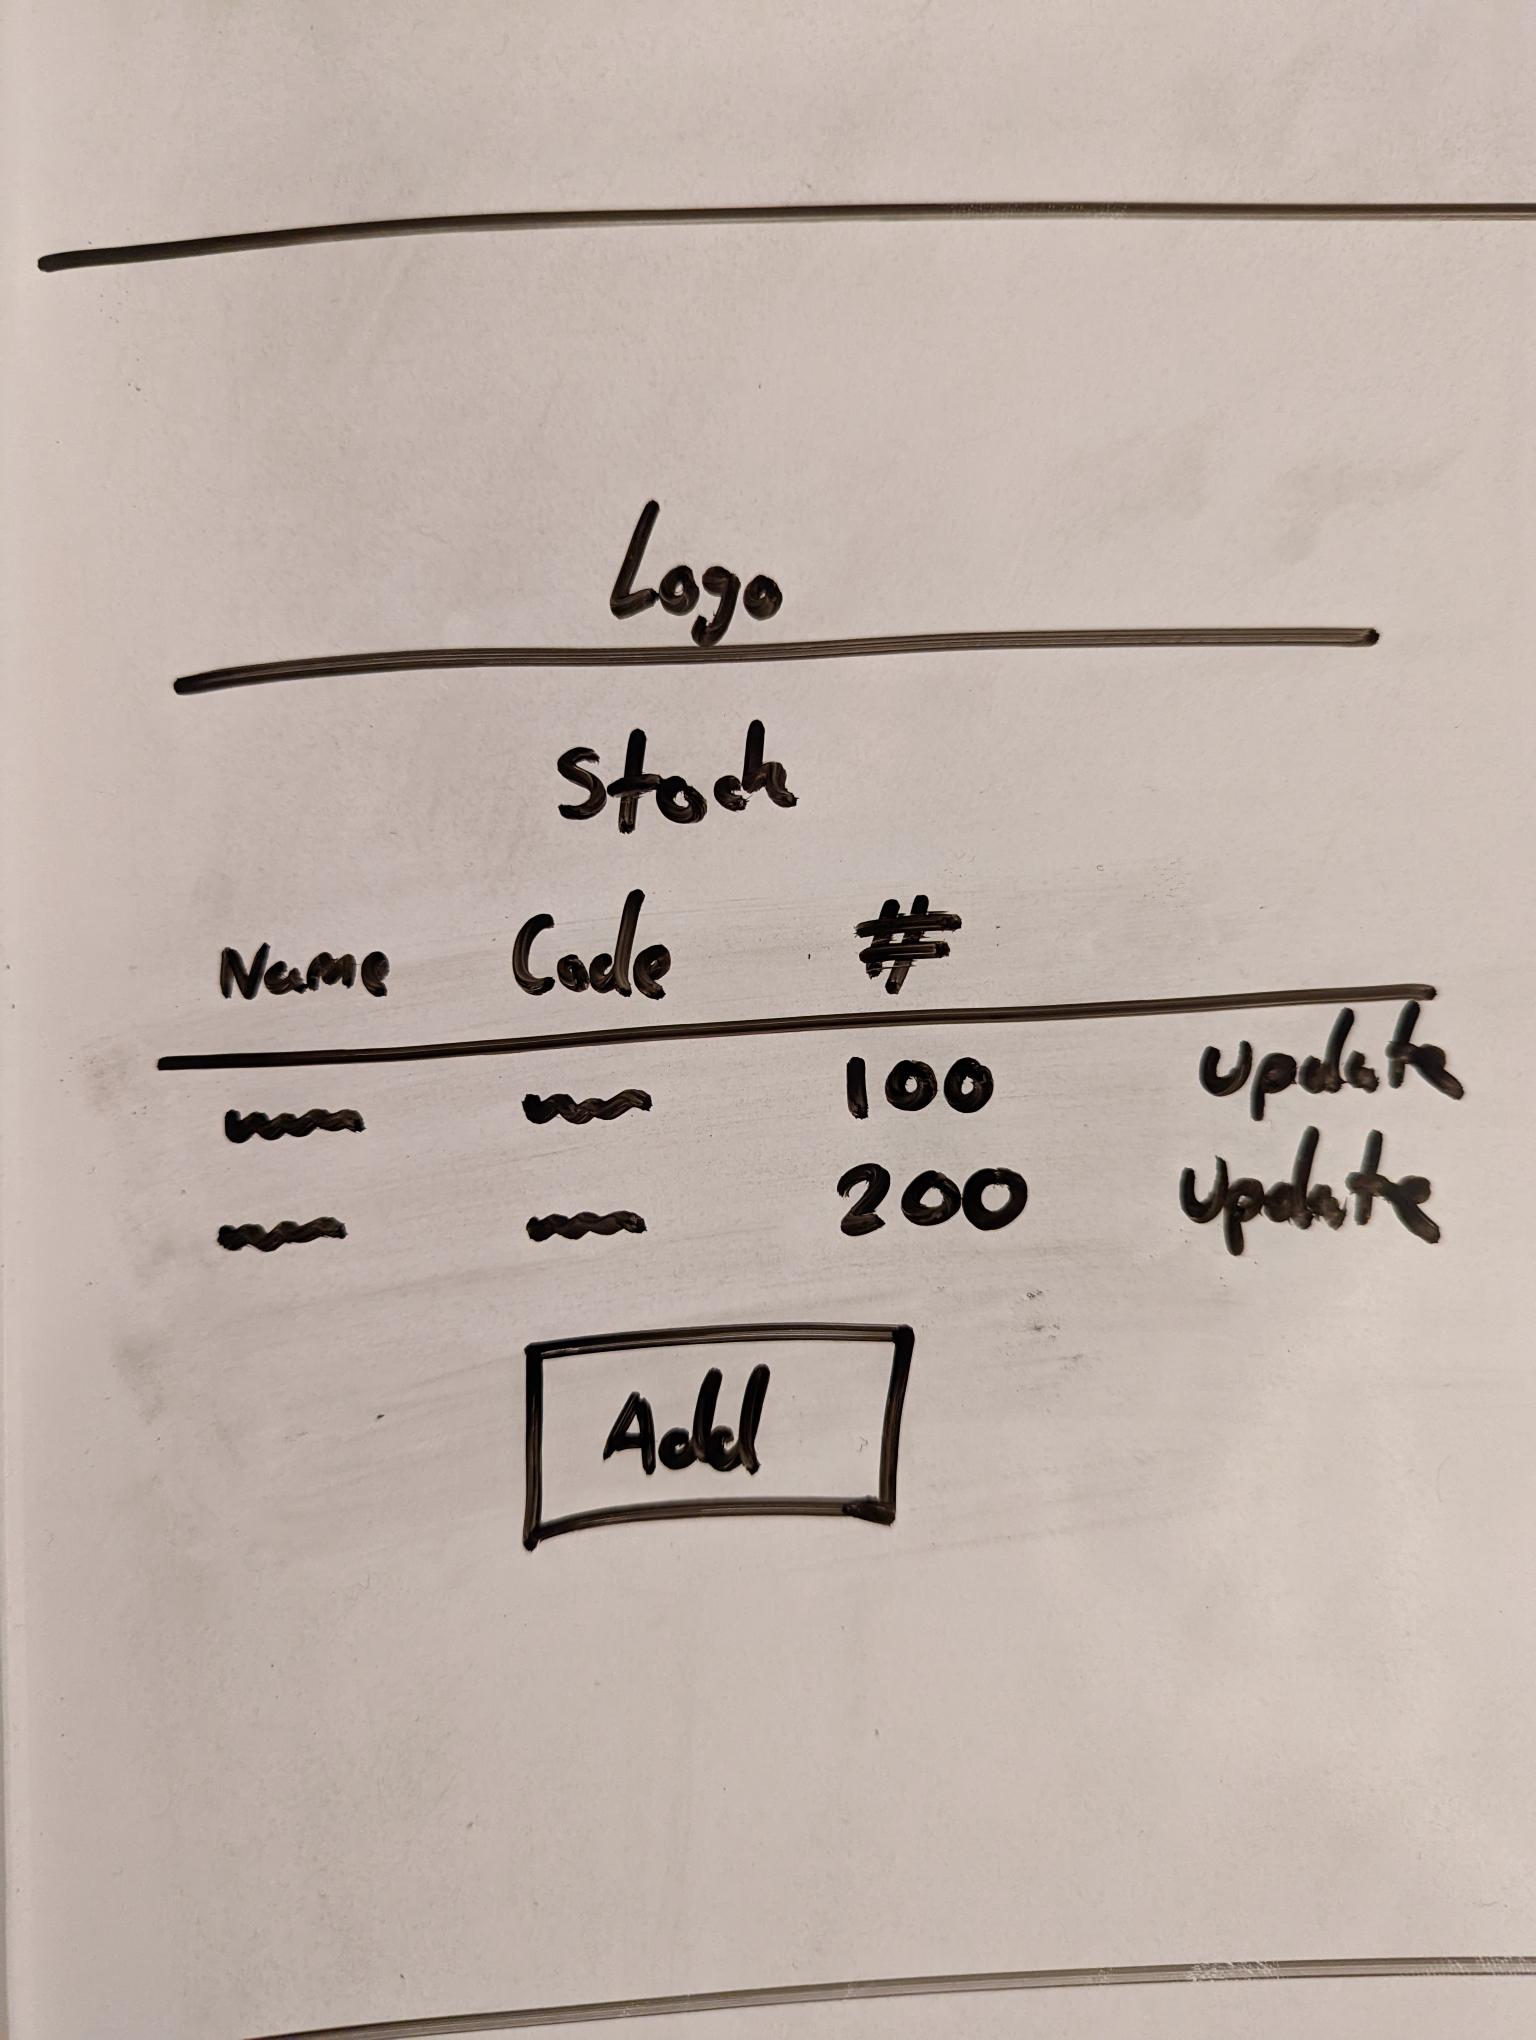 Logo
Stock
Name Code #
100 update
200 update
Add